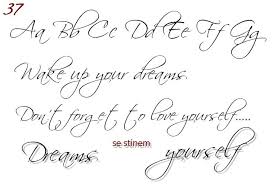 37
Aa Bb Cc Dd Ee Ff Gg
Wake up your dreams
Don't forget to love yourself.....
se stinem
Dreams yourself